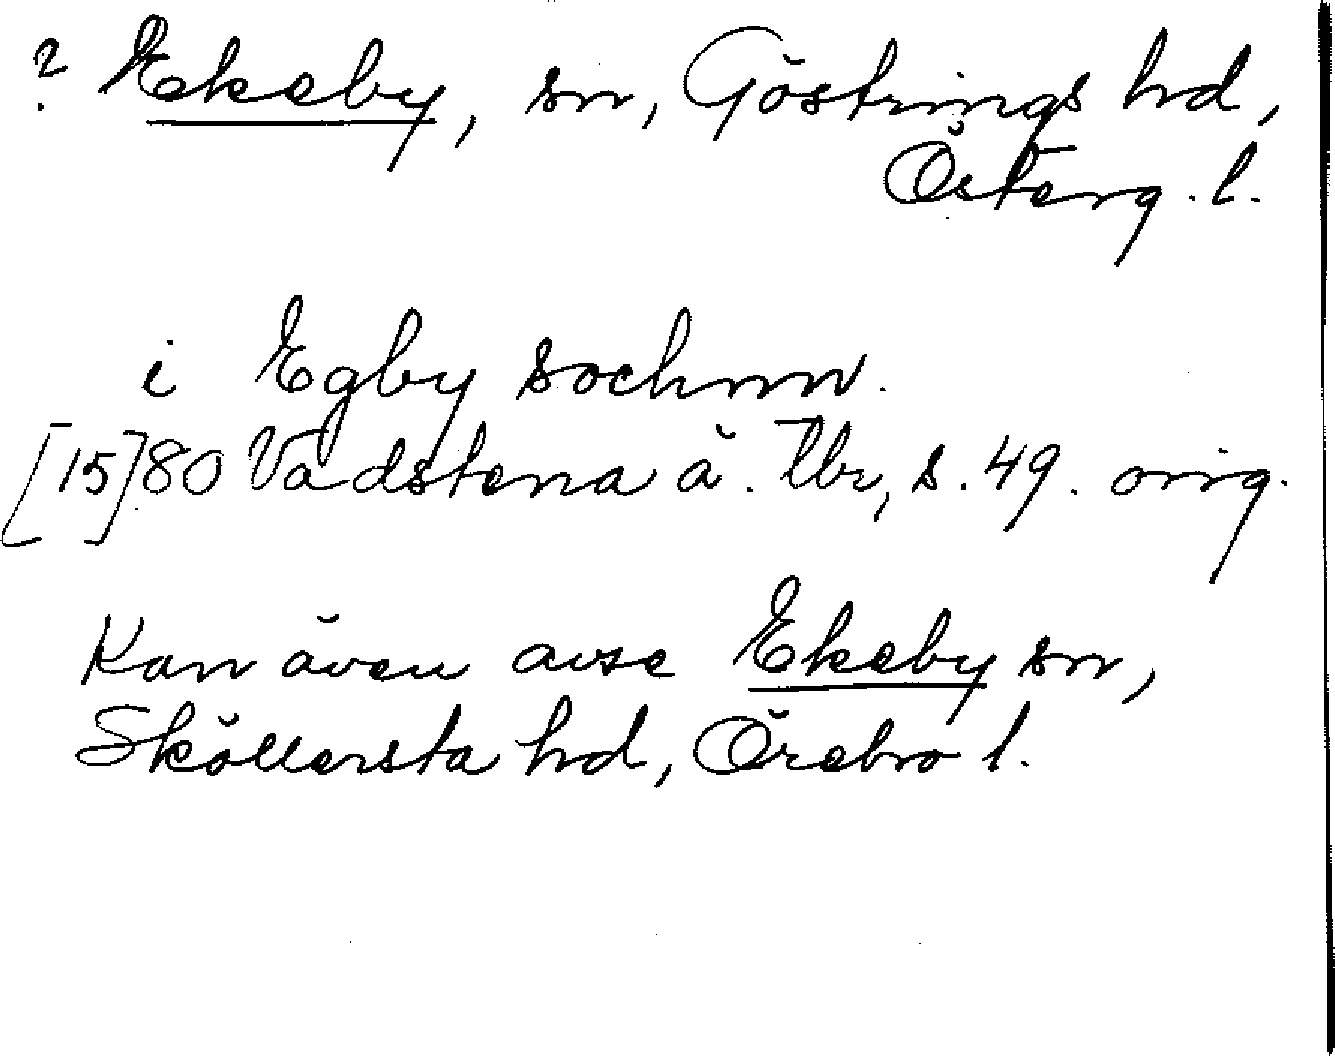 ? Ekeby, sn, Göstrings hd,
Österg. l.
i Egby sochnn.
[15]80 Vadstena ä. tbr, s. 49. orig.
Kan även avse Ekeby sn,
Sköllersta hd, Örebro l.